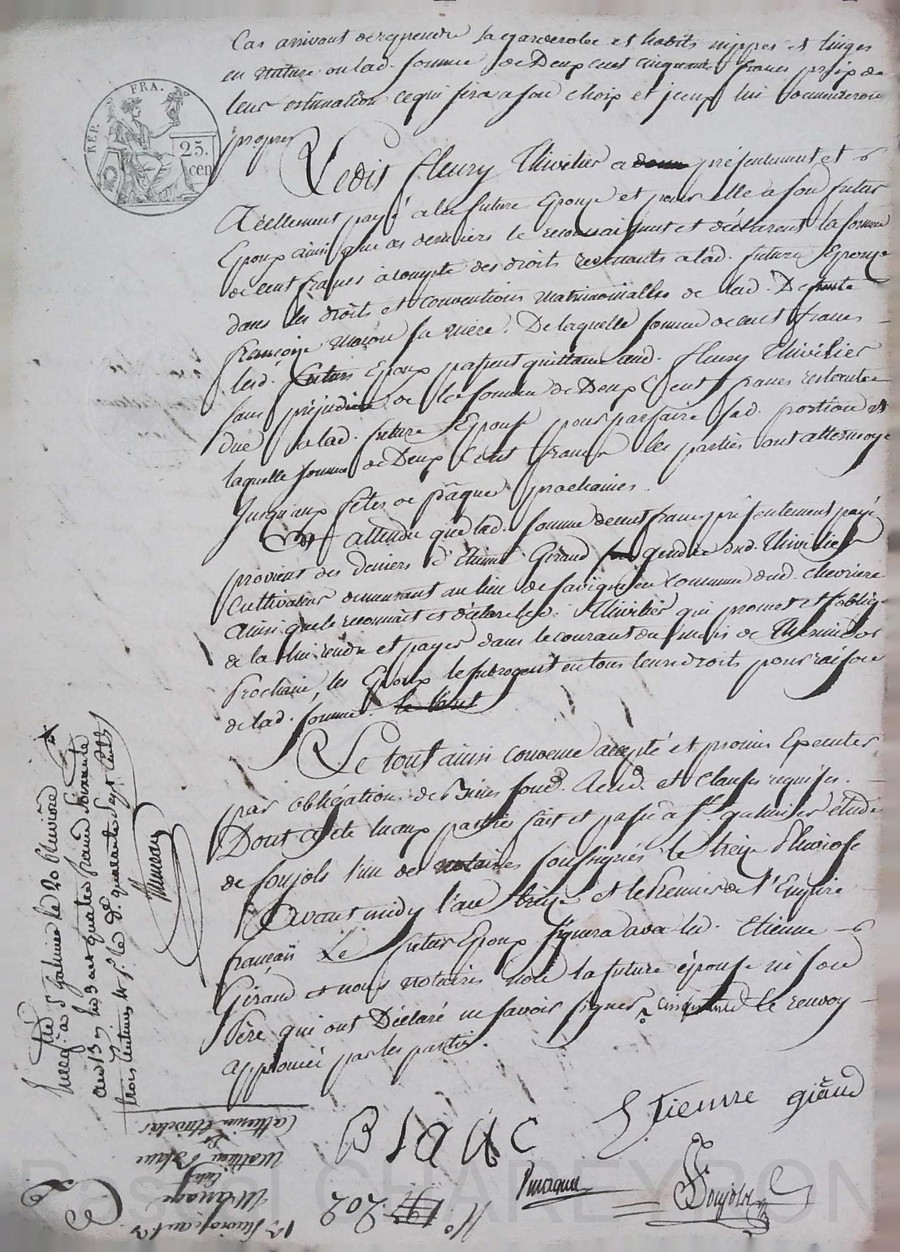 Cas arrivant de reprendre sa garderobe et habits nippes et linges
en nature ou lad. somme de Deux cent cinquante francs prix de
leur estimation ce qui sera a son choix et jceux lui demeureront
propres
REP. FRA.
25.
cen
Ledit fleury Thivilier a presentement et
Réellement payé a la future Epouse et pour elle a son futur
Epoux ainsi que ces derniers le reconnaissent et déclarent la somme
de cent francs acompte des droits revenants a lad. future Epouse
dans les droits et conventions matrimonialles de lad. Defunte
francoise maçon sa mère. De laquelle somme de cent francs
lesd. futurs Epoux passent quittance aud. fleury Thivilier
sans préjudice de la somme de Deux Cent francs restante
due a lad. future Epouse pour parfaire sad. portion
laquelle somme de Deux Cent francs les parties ont attermoyé
Jusqu'aux fêtes de pâque prochaines.
Et attendu que lad. somme de cent francs présentement payé
provient des deniers d'Etienne Girand gendre dud. Thivilier
Cultivateur demeurant au lieu de commune dud. chevrière
Ainsi que le reconnait et déclare led. Thivilier qui promet et s'oblige
de la lui rendre et payer dans le courant du mois de Thermidor
Prochain, les Epoux le subrogent en tous leurs droits pour raison
de lad. somme.
Le tout ainsi convenu accepté et promis Executer
par obligation de Biens soud. Rend. et Clauses requises.
Dont acte lu aux parties fait et passé a St galmier étude
de Soujols l'un des notaires soussignés le treize Pluviose
Avant midy l'an treize et le Premier de l'Empire
français Le futur Epoux signera avec led. Etienne
Girand et nous notaires non la future épouse ni son
Père qui ont Déclaré ne savoir signer le renvoy
approuvé par les parties.
Enregistré a St Galmier le 20 Pluviose
an 13
Blanc
Etienne giraud
Soujols
No 202
13 pluviose an 13
Mariage
Entre
Mathieu Blanc
et
Catherine Thivilier